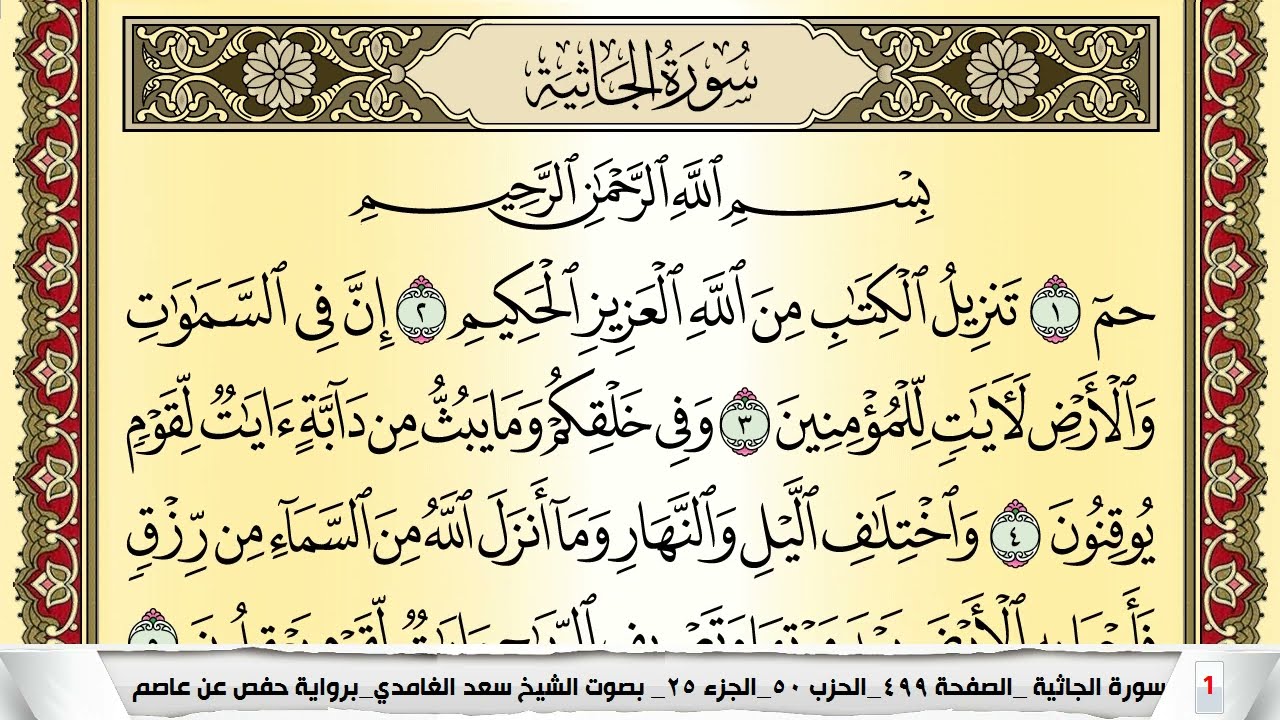 سُورَةُ الجَاثِيَةِ
بِسْمِ ٱللَّهِ ٱلرَّحْمَٰنِ ٱلرَّحِيمِ
حمٓ ١ تَنزِيلُ ٱلْكِتَٰبِ مِنَ ٱللَّهِ ٱلْعَزِيزِ ٱلْحَكِيمِ ٢ إِنَّ فِى ٱلسَّمَٰوَٰتِ
وَٱلْأَرْضِ لَءَايَٰتٍ لِّلْمُؤْمِنِينَ ٣ وَفِى خَلْقِكُمْ وَمَا يَبُثُّ مِن دَآبَّةٍ ءَايَٰتٌ لِّقَوْمٍ
يُوقِنُونَ ٤ وَٱخْتِلَٰفِ ٱلَّيْلِ وَٱلنَّهَارِ وَمَآ أَنزَلَ ٱللَّهُ مِنَ ٱلسَّمَآءِ مِن رِّزْقٍ
سورة الجاثية _الصفحة ٤٩٩_الحزب ٥٠_الجزء ٢٥_ بصوت الشيخ سعد الغامدي_برواية حفص عن عاصم
1